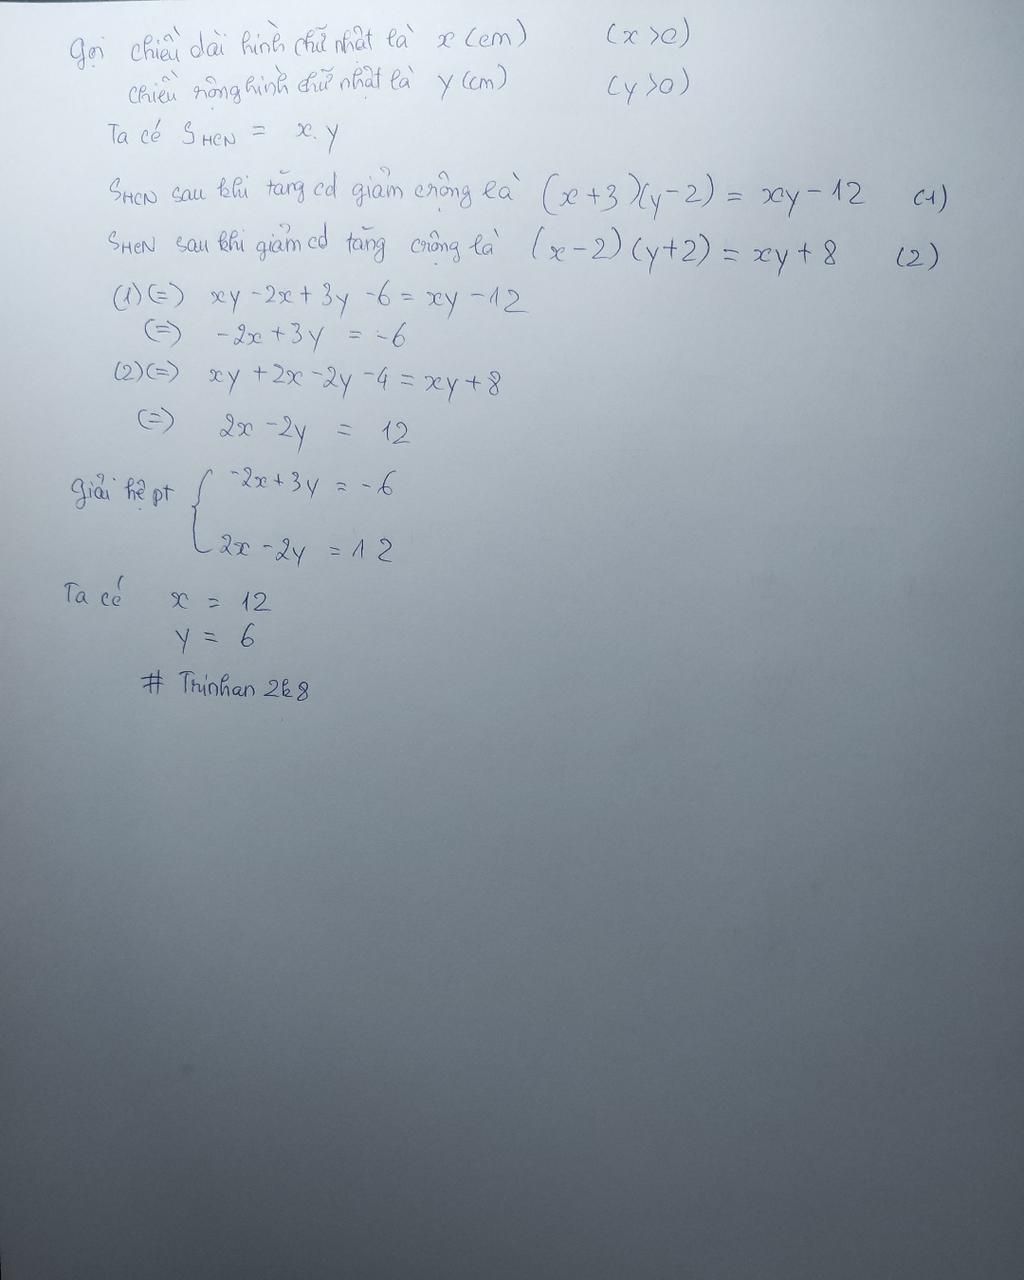 Gọi chiều dài hình chữ nhật là x (cm) (x>0)
chiều rộng hình chữ nhật là y (cm) (y>0)
Ta có S HCN = x.y
S HCN sau khi tăng cd giảm crộng là (x+3)(y-2) = xy-12 (1)
S HCN sau khi giảm cd tăng crộng là (x-2)(y+2) = xy+8 (2)
(1) (=) xy -2x + 3y -6 = xy -12
(=) -2x + 3y = -6
(2) (=) xy + 2x - 2y - 4 = xy + 8
(=) 2x - 2y = 12
Giải hệ pt { -2x + 3y = -6
2x - 2y = 12
Ta có x = 12
y = 6
# Trinhan 2k8